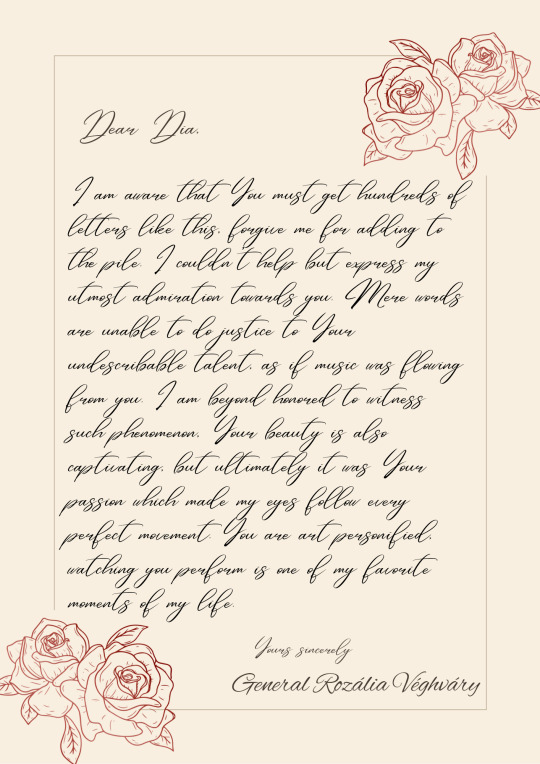 Dear Dia,
I am aware that You must get hundreds of
letters like this, forgive me for adding to
the pile. I couldn't help but express my
utmost admiration towards you. Mere words
are unable to do justice to Your
undescribable talent, as if music was flowing
from you. I am beyond honored to witness
such phenomenon. Your beauty is also
captivating, but ultimately it was Your
passion which made my eyes follow every
perfect movement. You are art personified,
watching you perform is one of my favorite
moments of my life.
Yours sincerely
General Rozália Véghváry